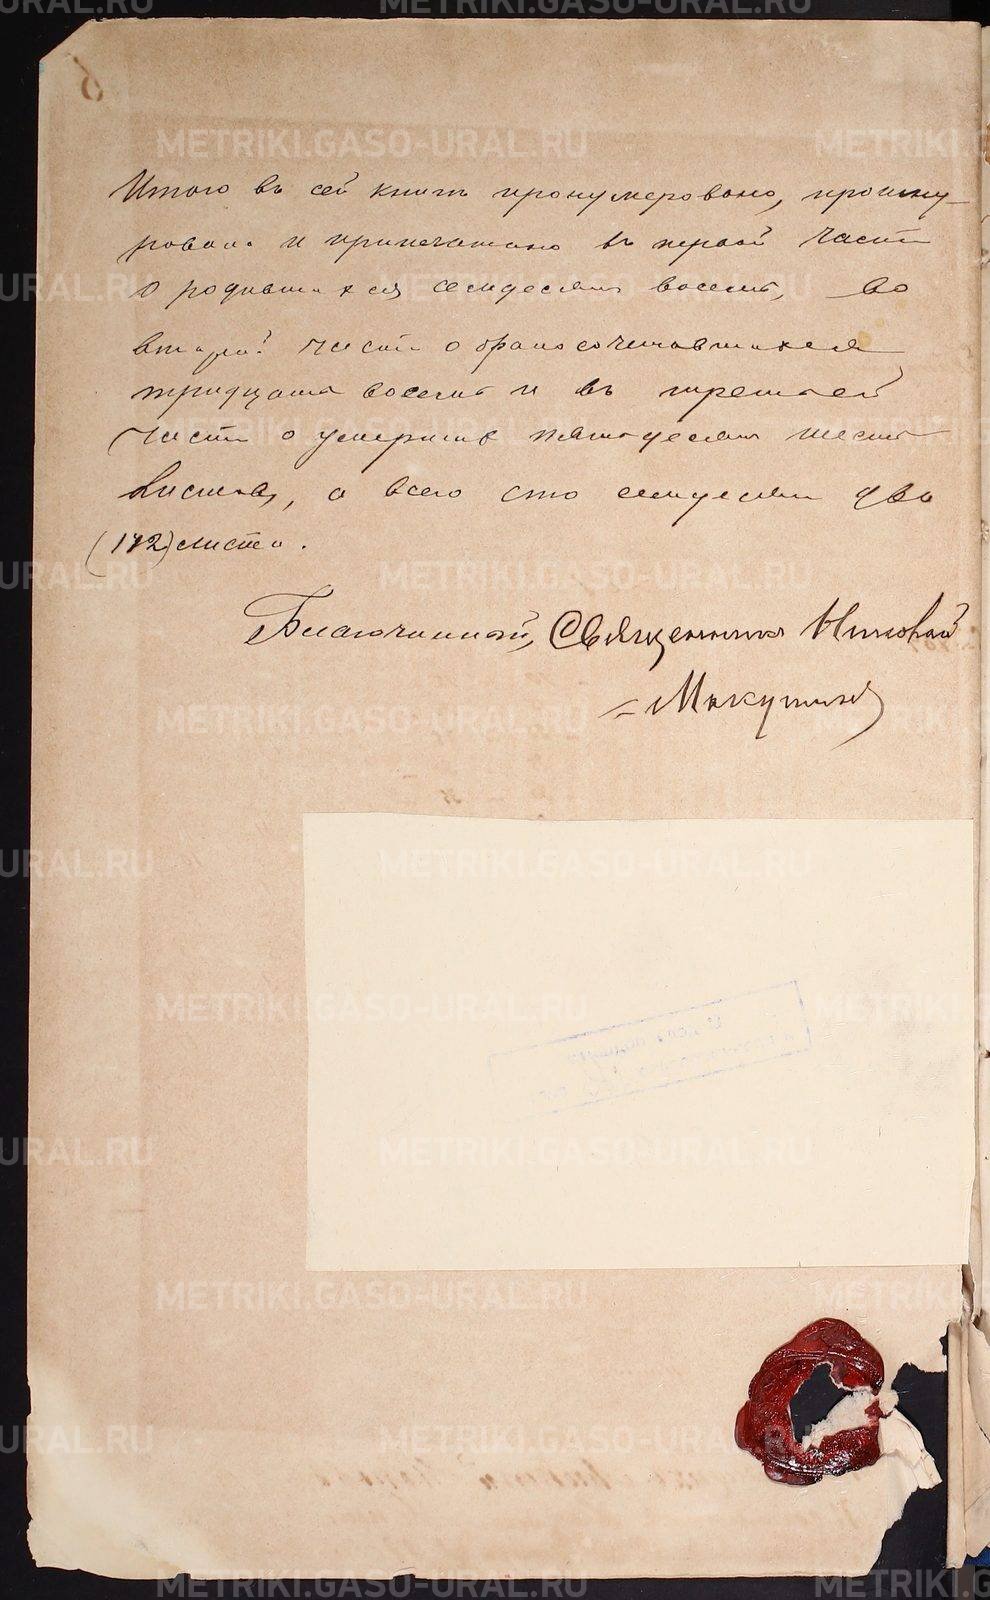 Итого въ сей книгѣ пронумеровано, прошну-
ровано и припечатано въ первой части
о родившихся семьдесятъ восемь, во
второй части о бракосочетавшихся
тридцать восемь и въ третьей
части о умершихъ пятьдесятъ шесть
листовъ, а всего сто семьдесятъ два
(172) листа.
Благочинный, Священникъ Николай
METRIKI.GASO-URAL.RU